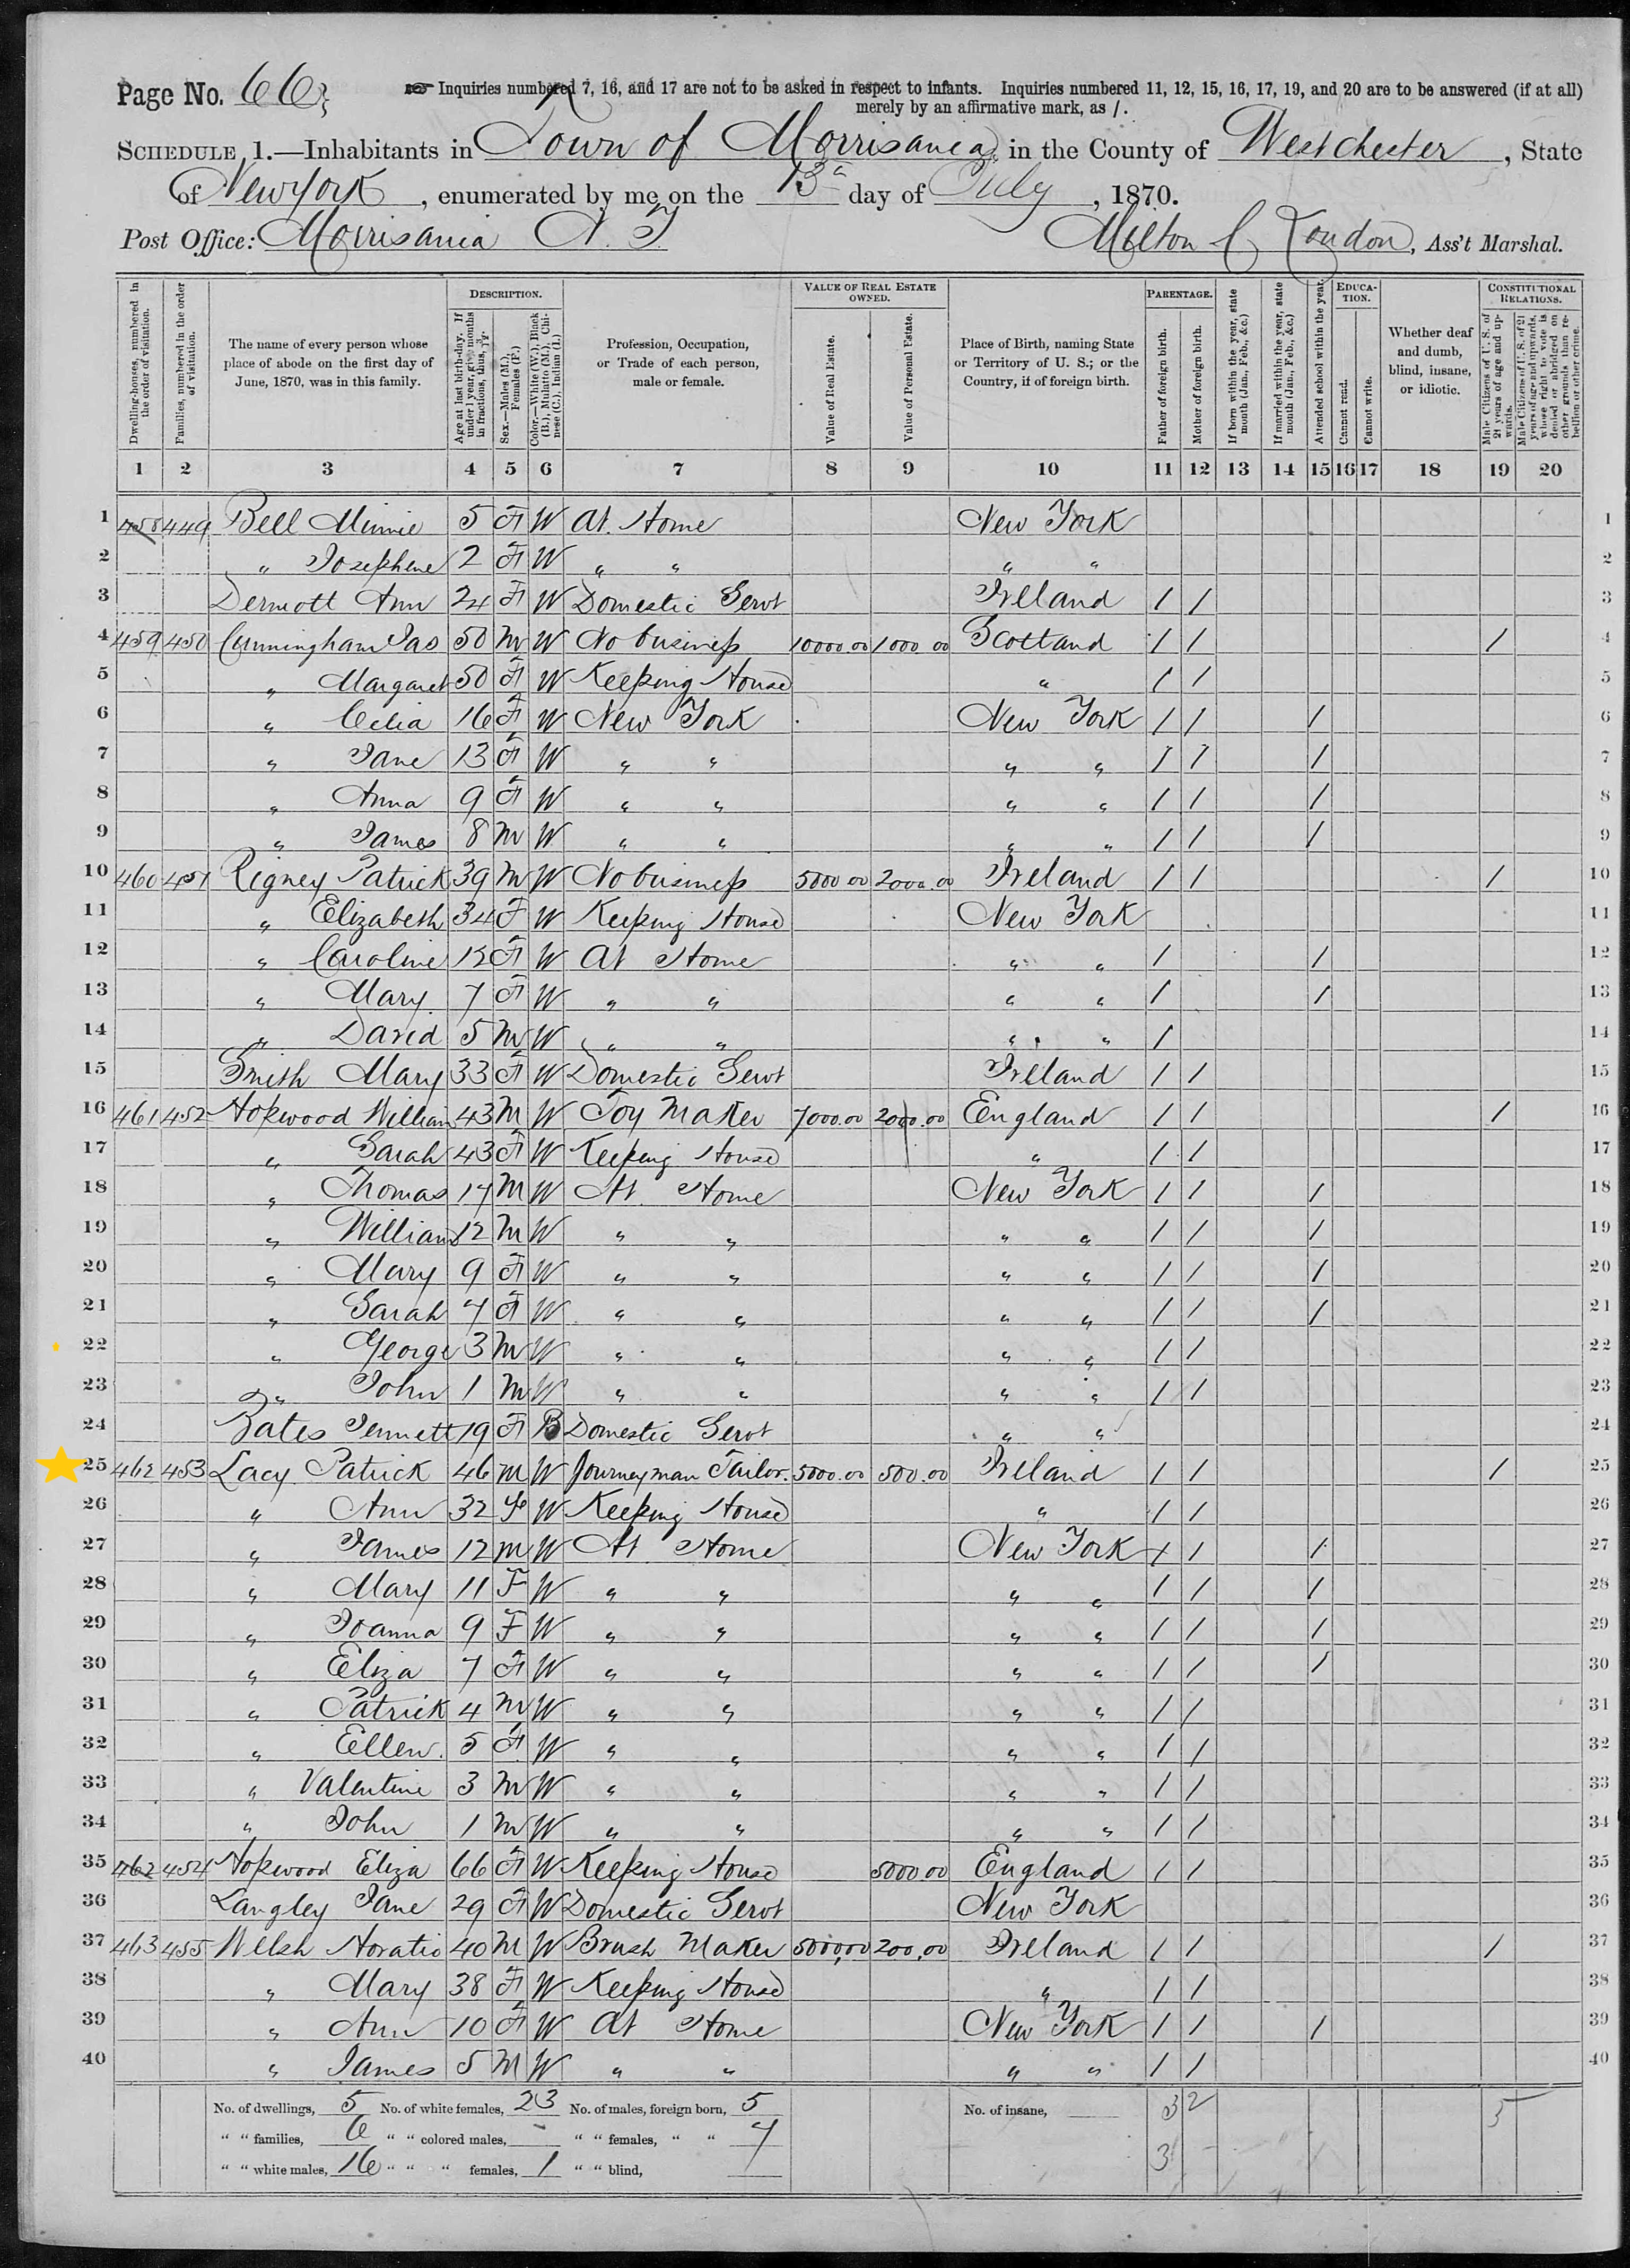 Page No. 66
Inquiries numbered 7, 16, and 17 are not to be asked in respect to infants. Inquiries numbered 11, 12, 15, 16, 17, 19, and 20 are to be answered (if at all)
merely by an affirmative mark, as /.
SCHEDULE 1.—Inhabitants in Town of Morrisania, in the County of Westchester, State
of New York, enumerated by me on the 13 day of July, 1870.
Post Office: Morrisania N. Y Milton C London, Ass't Marshal.
Dwelling-houses, numbered in the order of visitation.
Families, numbered in the order of visitation.
The name of every person whose place of abode on the first day of June, 1870, was in this family.
DESCRIPTION.
Age at last birth-day. If under 1 year, give months in fractions, thus, 3/12.
Sex.—Males (M.), Females (F.)
Color.—White (W.), Black (B.), Mulatto (M.), Chinese (C.), Indian (I.)
Profession, Occupation, or Trade of each person, male or female.
VALUE OF REAL ESTATE OWNED.
Value of Real Estate.
Value of Personal Estate.
Place of Birth, naming State or Territory of U. S.; or the Country, if of foreign birth.
PARENTAGE.
Father of foreign birth.
Mother of foreign birth.
If born within the year, state month (Jan., Feb., &c.)
If married within the year, state month (Jan., Feb., &c.)
Attended school within the year.
EDUCATION.
Cannot read.
Cannot write.
Whether deaf and dumb, blind, insane, or idiotic.
CONSTITUTIONAL RELATIONS.
Male Citizens of U. S. of 21 years of age and upwards.
Male Citizens of U. S. of 21 years of age and upwards, whose right to vote is denied or abridged on other grounds than rebellion or other crime.
1 2 3 4 5 6 7 8 9 10 11 12 13 14 15 16 17 18 19 20
1 458 449 Bell Minnie 5 F W At Home New York 1
2 " Josephene 2 F W " " " " 2
3 Dermott Ann 24 F W Domestic Servt Ireland / / 3
4 459 450 Cunningham Jas 50 M W No business 10000.00 1000.00 Scotland / / / 4
5 " Margaret 50 F W Keeping House " / / 5
6 " Celia 16 F W New York New York / / / 6
7 " Jane 13 F W " " " " / / / 7
8 " Anna 9 F W " " " " / / / 8
9 " James 8 M W " " " " / / / 9
10 460 451 Rigney Patrick 39 M W No business 5000.00 2000.00 Ireland / / / 10
11 " Elizabeth 34 F W Keeping House New York 11
12 " Caroline 12 F W At Home " " / / 12
13 " Mary 7 F W " " " " / / 13
14 " David 5 M W " " " " / 14
15 Smith Mary 33 F W Domestic Servt Ireland / / 15
16 461 452 Hopwood William 43 M W Toy Maker 7000.00 2000.00 England / / / 16
17 " Sarah 43 F W Keeping House " / / 17
18 " Thomas 17 M W At Home New York / / / 18
19 " William 12 M W " " " " / / / 19
20 " Mary 9 F W " " " " / / / 20
21 " Sarah 7 F W " " " " / / / 21
22 " George 3 M W " " " " / / 22
23 " John 1 M W " " " " / / 23
24 Bates Jennett 19 F B Domestic Servt " " 24
25 462 453 Lacy Patrick 46 M W Journeyman Tailor 5000.00 500.00 Ireland / / / 25
26 " Ann 32 F W Keeping House " / / 26
27 " James 12 M W At Home New York / / / 27
28 " Mary 11 F W " " " " / / / 28
29 " Joanna 9 F W " " " " / / / 29
30 " Eliza 7 F W " " " " / / / 30
31 " Patrick 4 M W " " " " / / 31
32 " Ellen 5 F W " " " " / / 32
33 " Valentine 3 M W " " " " / / 33
34 " John 1 M W " " " " / / 34
35 462 454 Hopwood Eliza 66 F W Keeping House 5000.00 England / / 35
36 Langley Jane 29 F W Domestic Servt New York 36
37 463 455 Welsh Horatio 40 M W Brush Maker 5000,00 200,00 Ireland / / / 37
38 " Mary 38 F W Keeping House " / / 38
39 " Ann 10 F W At Home New York / / / 39
40 " James 5 M W " " " " / / 40
No. of dwellings, 5 No. of white females, 23 No. of males, foreign born, 5 No. of insane, 32 5
" " families, 6 " " colored males, - " " females, " " 7
" " white males, 16 " " " females, 1 " " blind, 3